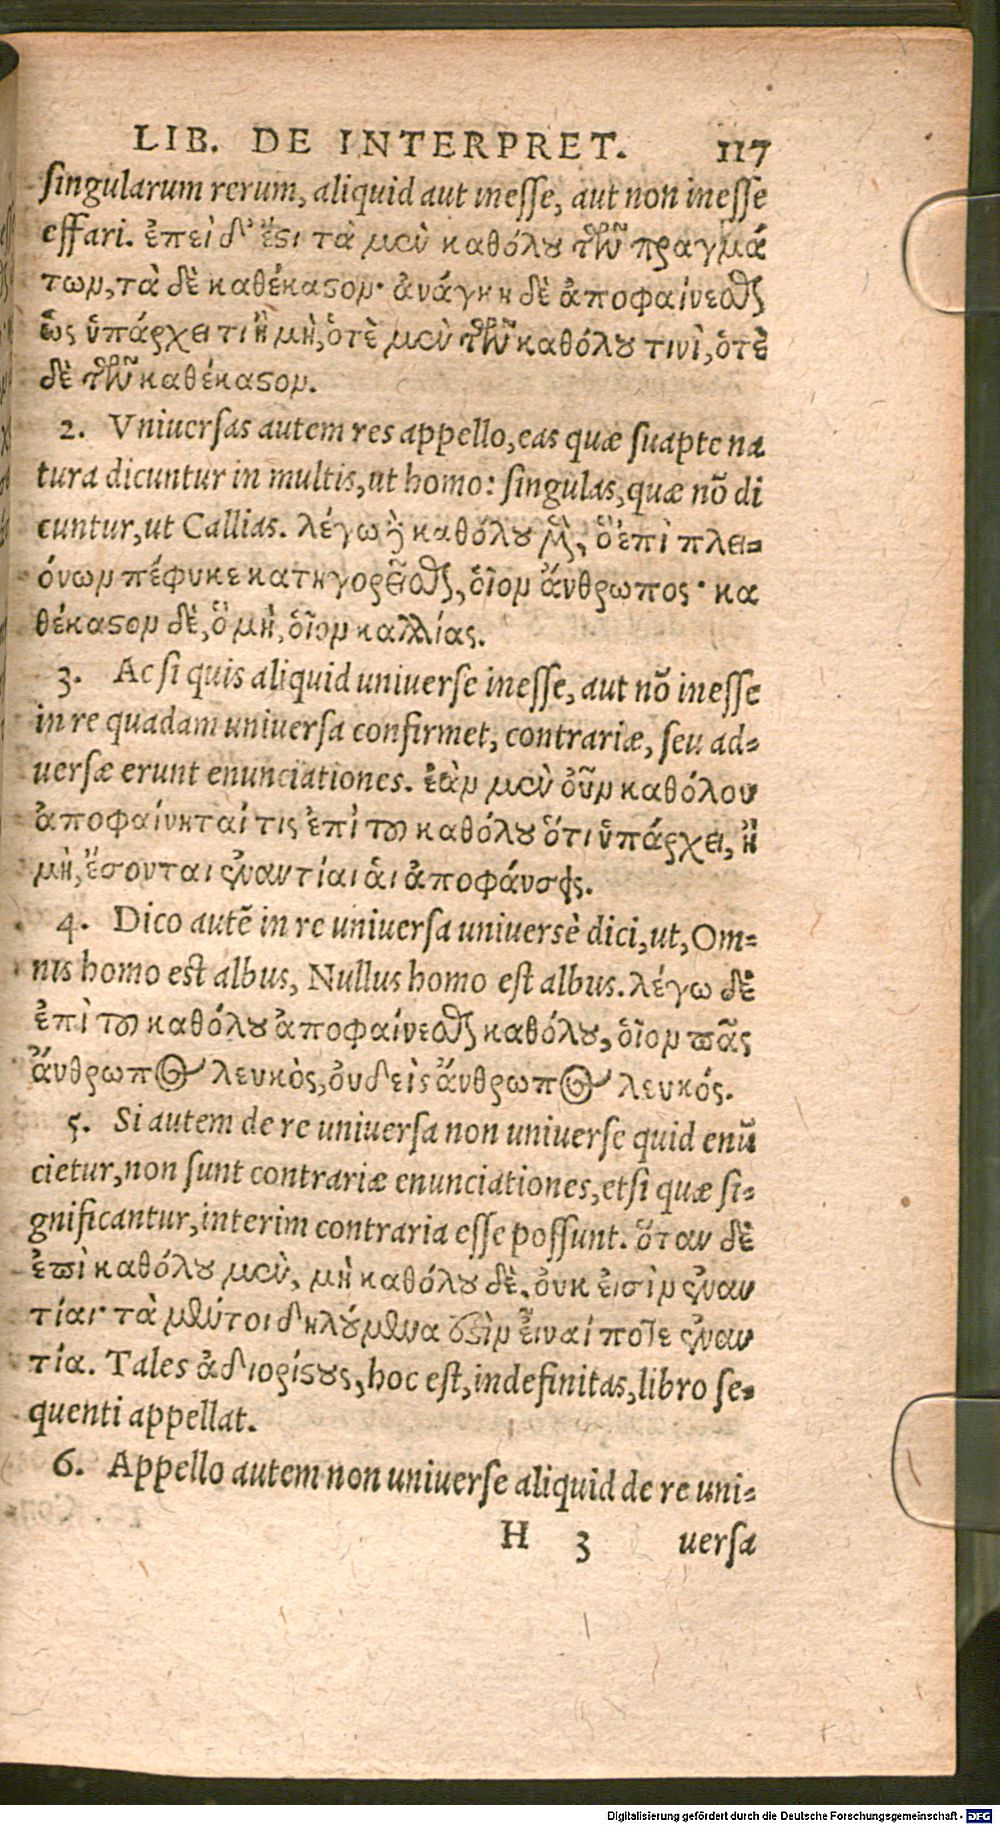 LIB. DE INTERPRET. 117
singularum rerum, aliquid aut inesse, aut non inesse
effari. ἐπεὶ δ' ἔϛι τὰ μὲν καθόλου τῶν πραγμά
των, τὰ δὲ καθέκαϛον· ἀνάγκη δὲ ἀποφαίνεσθαι
ὡς ὑπάρχει τι ἢ μὴ, ὁτὲ μὲν τῶν καθόλου τινὶ, ὁτὲ
δὲ τῶν καθέκαϛον.
2. Vniuersas autem res appello, eas quæ suapte na
tura dicuntur in multis, ut homo: singulas, quæ nõ di
cuntur, ut Callias. λέγω δὲ καθόλου μὲν, ὃ ἐπὶ πλει-
όνων πέφυκε κατηγορεῖσθαι, ὁῖον ἄνθρωπος· κα
θέκαϛον δὲ, ὃ μὴ, ὁῖον καλλίας.
3. Ac si quis aliquid uniuerse inesse, aut nõ inesse
in re quadam uniuersa confirmet, contrariæ, seu ad-
uersæ erunt enunciationes. ἐὰν μὲν οὖν καθόλου
ἀποφαίνηταί τις ἐπὶ τοῦ καθόλου ὅτι ὑπάρχει, ἢ
μὴ, ἔσονται ἐναντίαι ἁι ἀποφάνσεις.
4. Dico autẽ in re uniuersa uniuersè dici, ut, Om-
nis homo est albus, Nullus homo est albus. λέγω δὲ
ἐπὶ τοῦ καθόλου ἀποφαίνεσθαι καθόλου, ὁῖον πᾶς
ἄνθρωπος λευκὸς, ουδεὶς ἄνθρωπος λευκός.
5. Si autem de re uniuersa non uniuerse quid enũ
cietur, non sunt contrariæ enunciationes, etsi quæ si-
gnificantur, interim contraria esse possunt. ὅταν δὲ
ἐπὶ καθόλου μὲν, μὴ καθόλου δὲ, ὀυκ ἐισὶν ἐναν
τίαι· τὰ μέντοι δηλούμενα ἔϛιν ἐῖναί ποτε ἐναν
τία. Tales ἀδιορίϛους, hoc est, indefinitas, libro se-
quenti appellat.
6. Appello autem non uniuerse aliquid de re uni-
H 3 uersa
Digitalisierung gefördert durch die Deutsche Forschungsgemeinschaft - DFG